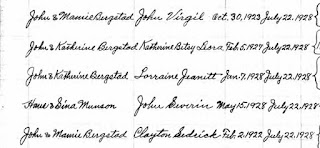 John & Mamie Bergstad John Virgil Oct. 30, 1923 July 22, 1928
John & Katherine Bergstad Katherine Bitsy Leora Feb 5, 1927 July 22, 1928
John & Katherine Bergstad Lorraine Jeanitt Jan. 7, 1928 July 22, 1928
Hans & Dina Munson John Severin May 15, 1928 July 22, 1928
John & Mamie Bergstad Clayton Sedrick Feb. 2, 1922 July 22, 1928